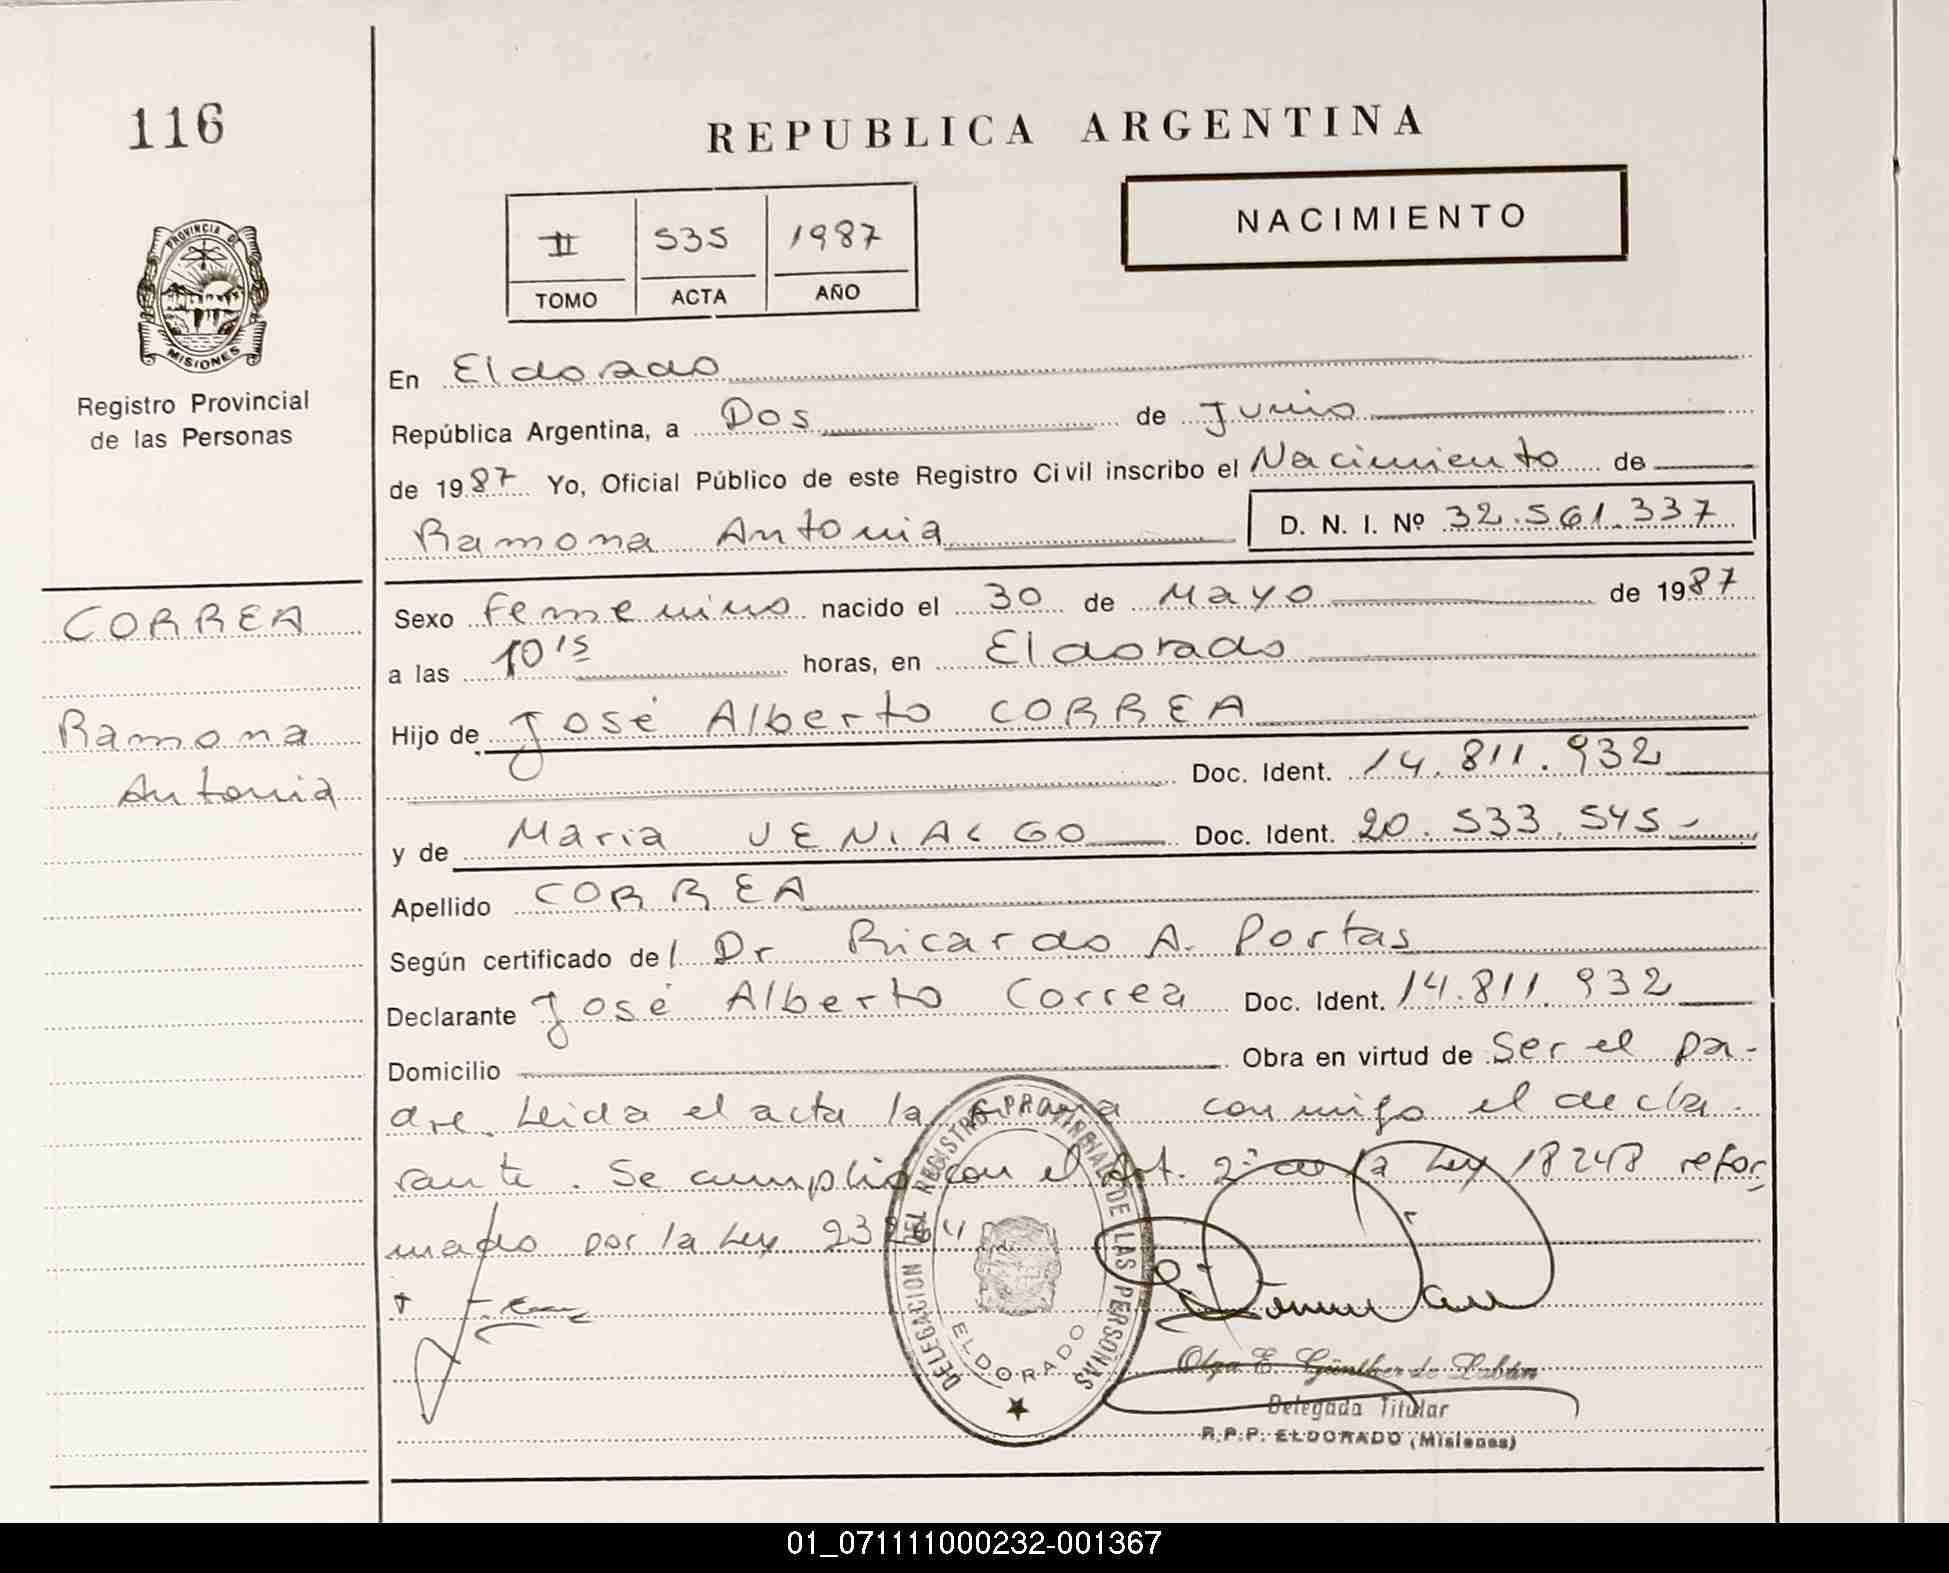 116
REPUBLICA ARGENTINA
II 535 1987
TOMO ACTA AÑO
NACIMIENTO
PROVINCIA DE
MISIONES
Registro Provincial
de las Personas
En Eldorado
República Argentina, a Dos de Junio
de 1987 Yo, Oficial Público de este Registro Civil inscribo el Nacimiento de
Ramona Antonia D. N. I. Nº 32.561.337
CORREA
Ramona
Antonia
Sexo Femenino nacido el 30 de Mayo de 1987
a las 10'15 horas, en Eldorado
Hijo de José Alberto CORREA
Doc. Ident. 14.811.932
y de Maria VENIALGO Doc. Ident. 20.533.545-
Apellido CORREA
Según certificado del Dr Ricardo A. Portas
Declarante José Alberto Correa Doc. Ident. 14.811.932
Domicilio Obra en virtud de Ser el pa-
dre. Leida el acta la firma conmigo el decla-
rante. Se cumplio con el Art. 2º de la Ley 18248 refor-
mado por la Ley 23264
DELEGACION DEL REGISTRO PROVINCIAL DE LAS PERSONAS
ELDORADO
Olga E. Günther de Labán
Delegada Titular
R.P.P. ELDORADO (Misiones)
01_071111000232-001367